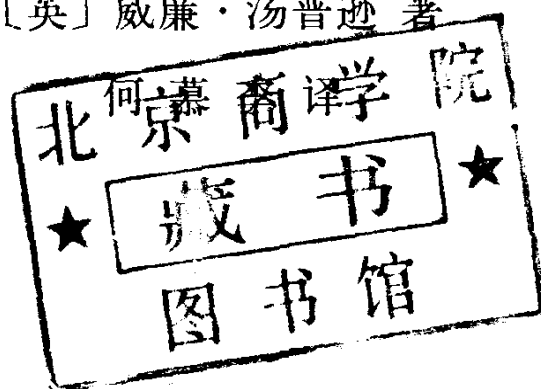 〔英〕威廉·汤普逊 著
何慕李译
北京商学院
★ 藏书 ★
图书馆